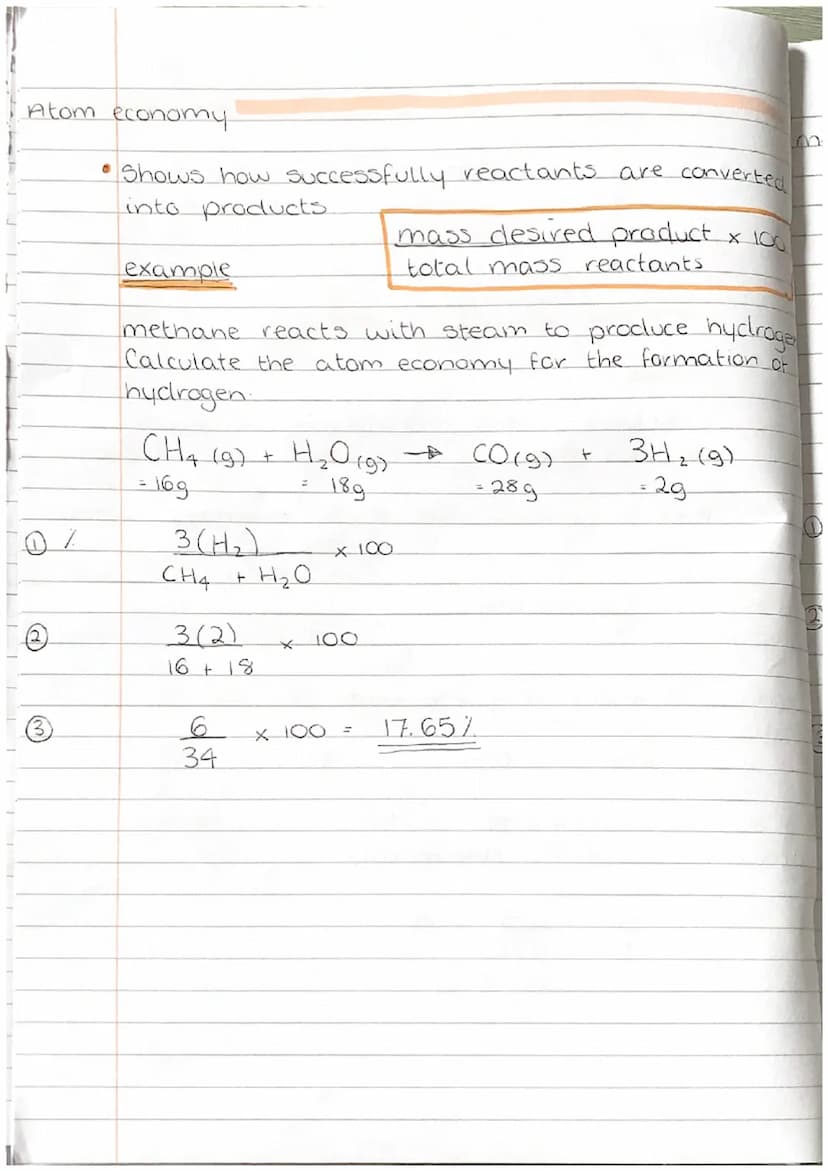 Atom economy
• Shows how successfully reactants are converted
into products
mass desired product x 100
total mass reactants
example
methane reacts with steam to produce hydrogen
Calculate the atom economy for the formation of
hydrogen.
CH₄ (g) + H₂O (g) → CO (g) + 3H₂ (g)
= 16g = 18g = 28g = 2g
① % 3(H₂) x 100
CH₄ + H₂O
② 3(2) x 100
16 + 18
③ 6 x 100 = 17.65%
34
m
①
②